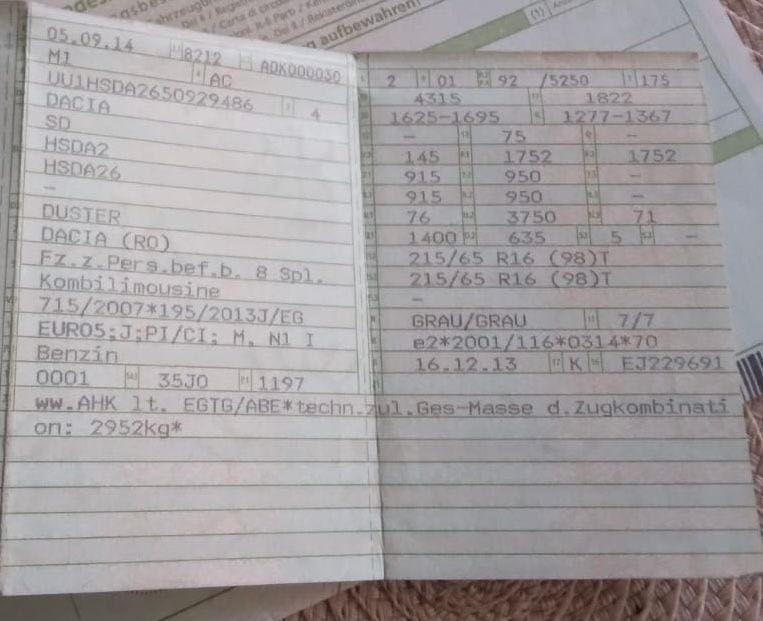 aufbewahren
05.09.14 8212 ADK000030
M1 AC
UU1HSDA2650929486 4
DACIA
SD
HSDA2
HSDA26
—
DUSTER
DACIA (RO)
Fz.z.Pers.bef.b. 8 Spl.
Kombilimousine
715/2007*195/2013J/EG
EURO5;J;PI/CI; M, N1 I
Benzin
0001 35J0 1197
2 01 92 /5250 175
4315 1822
1625-1695 1277-1367
— 75 —
145 1752 1752
915 950 —
915 950 —
76 3750 71
1400 635 5 —
215/65 R16 (98)T
215/65 R16 (98)T
—
GRAU/GRAU 7/7
e2*2001/116*0314*70
16.12.13 K EJ229691
ww.AHK lt. EGTG/ABE*techn.zul.Ges-Masse d.Zugkombinati
on: 2952kg*